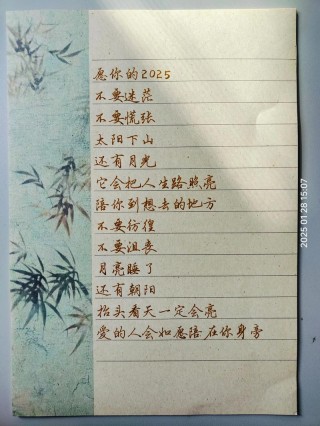 愿你的2025
不要迷茫
不要慌张
太阳下山
还有月光
它会把人生路照亮
陪你到想去的地方
不要彷徨
不要沮丧
月亮睡了
还有朝阳
抬头看天一定会亮
爱的人会如愿陪在你身旁
2025.01.28 15:07